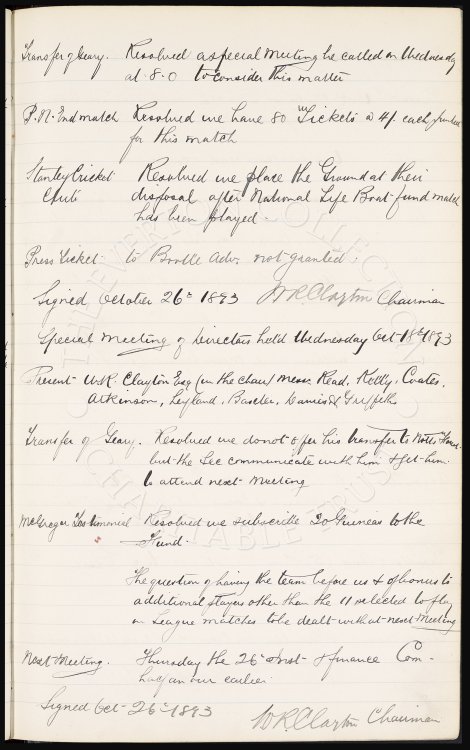 Transfer of Geary. Resolved a special Meeting be called on Wednesday
at 8.0 to consider this matter
P.N. End match Resolved we have 80 Tickets @ 4/- each printed
for this match
Stanley Cricket Resolved we place the Ground at their
Club disposal after National Life Boat fund match
has been played.
Press Ticket. to Bootle Adv. not granted.
Signed, October 26th 1893 W R Clayton Chairman
Special Meeting of Directors held Wednesday Oct 18th 1893
Present W.R. Clayton Esq (in the chair) Messrs Read, Kelly, Coates,
Atkinson, Leyland, Baxter, Davies & Griffiths
Transfer of Geary. Resolved we do not offer his transfer to Notts
but the Sec communicate with him & get him
to attend next Meeting
McGregor Testimonial Resolved we subscribe 20 Guineas to the
Fund.
The question of having the team before us & of bonus to
additional players other than the 11 selected to play
in League matches to be dealt with at next Meeting
Next Meeting. Thursday the 26th inst & finance Com-
half an hour earlier.
Signed Oct 26th 1893 W R Clayton Chairman
THE EVERTON COLLECTION
CHARITABLE TRUST